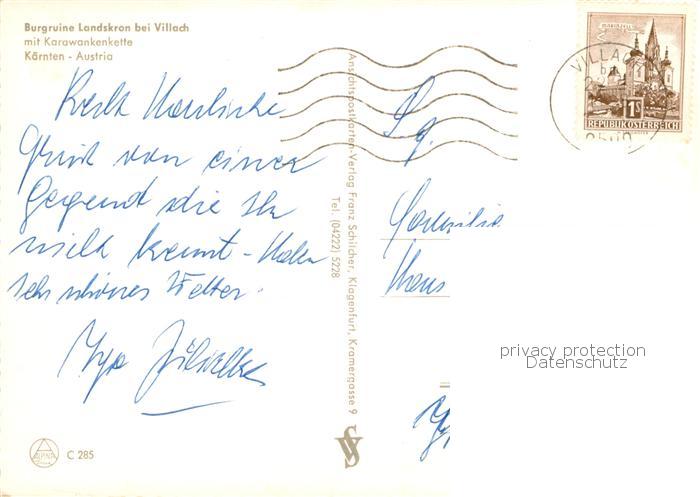 Burgruine Landskron bei Villach
mit Karawankenkette
Kärnten - Austria
Recht Herzliche
Grüße von einer
Gegend die Ihr
nicht kennt - Haben
sehr schönes Wetter.
C 285
Ansichtspostkarten-Verlag Franz Schilcher, Klagenfurt, Kramergasse 9
Tel. (04222) 5228
Familie
Hans
MARIAZELL
1S
REPUBLIK ÖSTERREICH
VILLACH
9500
privacy protection
Datenschutz